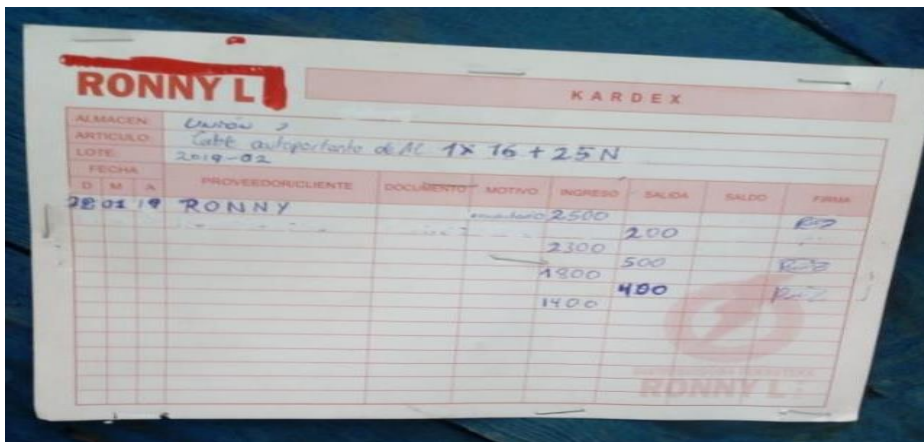 RONNY L
KARDEX
ALMACEN: Unión 2
ARTICULO: Cable autoportante de AL 1x 16 + 25 N
LOTE: 2019-02
FECHA
D M A PROVEEDOR/CLIENTE DOCUMENTO MOTIVO INGRESO SALIDA SALDO FIRMA
28 01 19 RONNY inventario 2500 Ruiz
200
2300
500 Ruiz
1800
400 Ruiz
1400
RONNY L